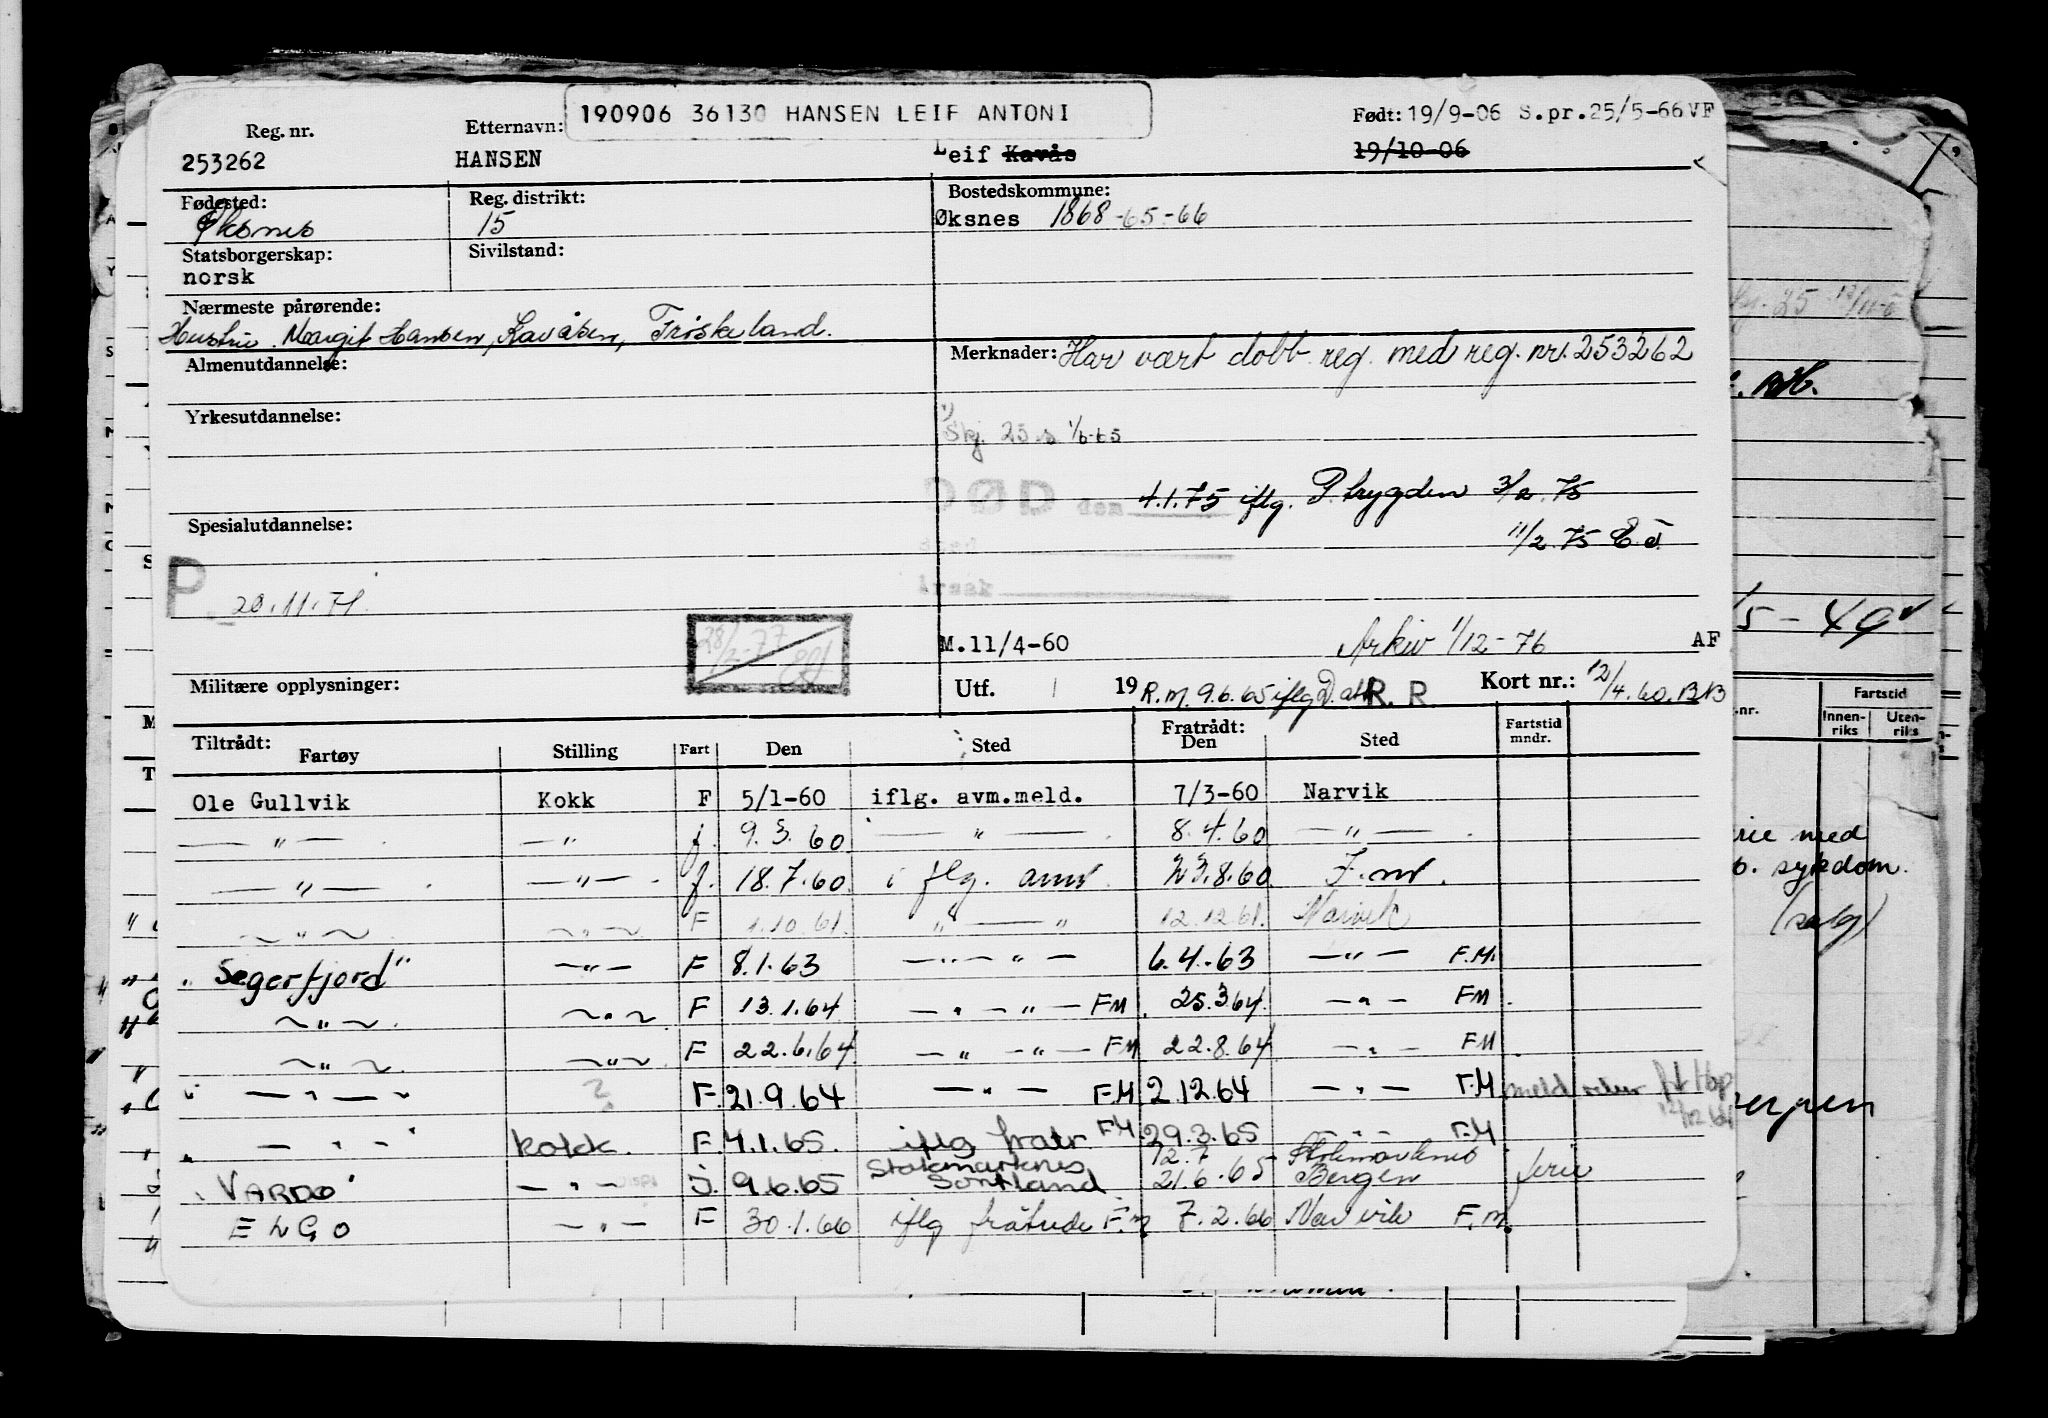 190906 36130 HANSEN LEIF ANTONI
Reg. nr. Etternavn: Født: 19/9-06 S.pr.25/5-66 VF
253262 HANSEN Leif Kavås 19/10-06
Fødested: Reg. distrikt: Bostedskommune:
Øksnes 15 Øksnes 1868-65-66
Statsborgerskap: Sivilstand:
norsk
Nærmeste pårørende:
Hustru Margit Hansen, Kavåsen, Friskeland.
Almenutdannelse: Merknader: Har vært dobb. reg. med reg. nr. 253262
Yrkesutdannelse:
Skj. 25 s 1/6-65
DØD den 4.1.75 iflg. P.trygden 3/2.75
Spesialutdannelse: 11/2.75
Sted
P. 20.11.71 Årsak
28/2-77
M.11/4-60 Arkiv 1/12-76 AF
Militære opplysninger: Utf. 19 R.M. 9.6.65 iflg R.R. Kort nr.: 12/4.60. BB
Tiltrådt: Fratrådt: Fartstid
Fartøy Stilling Fart Den Sted Den Sted mndr.
Ole Gullvik Kokk F 5/1-60 iflg. avm.meld. 7/3-60 Narvik
— " — — " f. 9.3.60 — " — 8.4.60 — " —
— " — — " — f. 18.7.60 iflg. 23.8.60
~ " ~ ~ " ~ F 1.10.61. " — " 12.12.61. Narvik
"Segerfjord" — " — F 8.1.63 — " — " — 6.4.63 — " — F.M.
~ " ~ ~ " ~ F 13.1.64 — " — " — FM. 25.3.64. — " — FM
~ " ~ ~ " ~ F 22.6.64 — " — " — FM 22.8.64 — " — FM
" — " — " ? F. 21.9.64 — " — F.M 2.12.64 — " — F.M meld
" — " — " kokk. F. 4.1.65. iflg fratr F.M. 29.3.65 — " — F.M
"VARDO" — " — J. 9.6.65 Stokmarknes Sortland 12.7 21.6.65 Stokmarknes Bergen ferie
ENGO — " — F 30.1.66 iflg fråtrede F.M 7.2.66 Narvik F.M.
Fartstid
Innen-riks Uten-riks
med
sykdom.